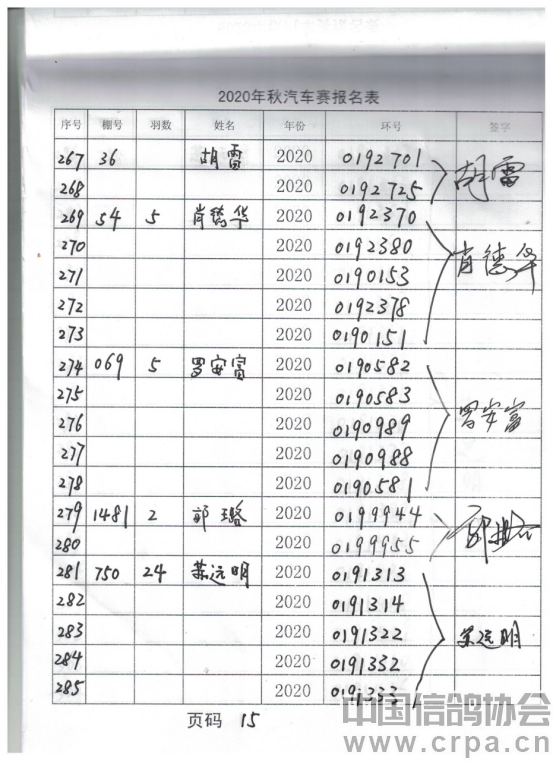 2020年秋汽车赛报名表
序号 棚号 羽数 姓名 年份 环号 签字
267 36 胡雷 2020 0192701 胡雷
268 2020 0192725
269 54 5 肖德华 2020 0192370 肖德华
270 2020 0192380
271 2020 0190153
272 2020 0192378
273 2020 0190151
274 069 5 罗安富 2020 0190582 罗安富
275 2020 0190583
276 2020 0190989
277 2020 0190988
278 2020 0190581
279 1481 2 郭璐 2020 0199944
280 2020 0199955
281 750 24 苏远明 2020 0191313 苏远明
282 2020 0191314
283 2020 0191322
284 2020 0191332
285 2020 0191333
页码 15
中国信鸽协会
www.crpa.cn